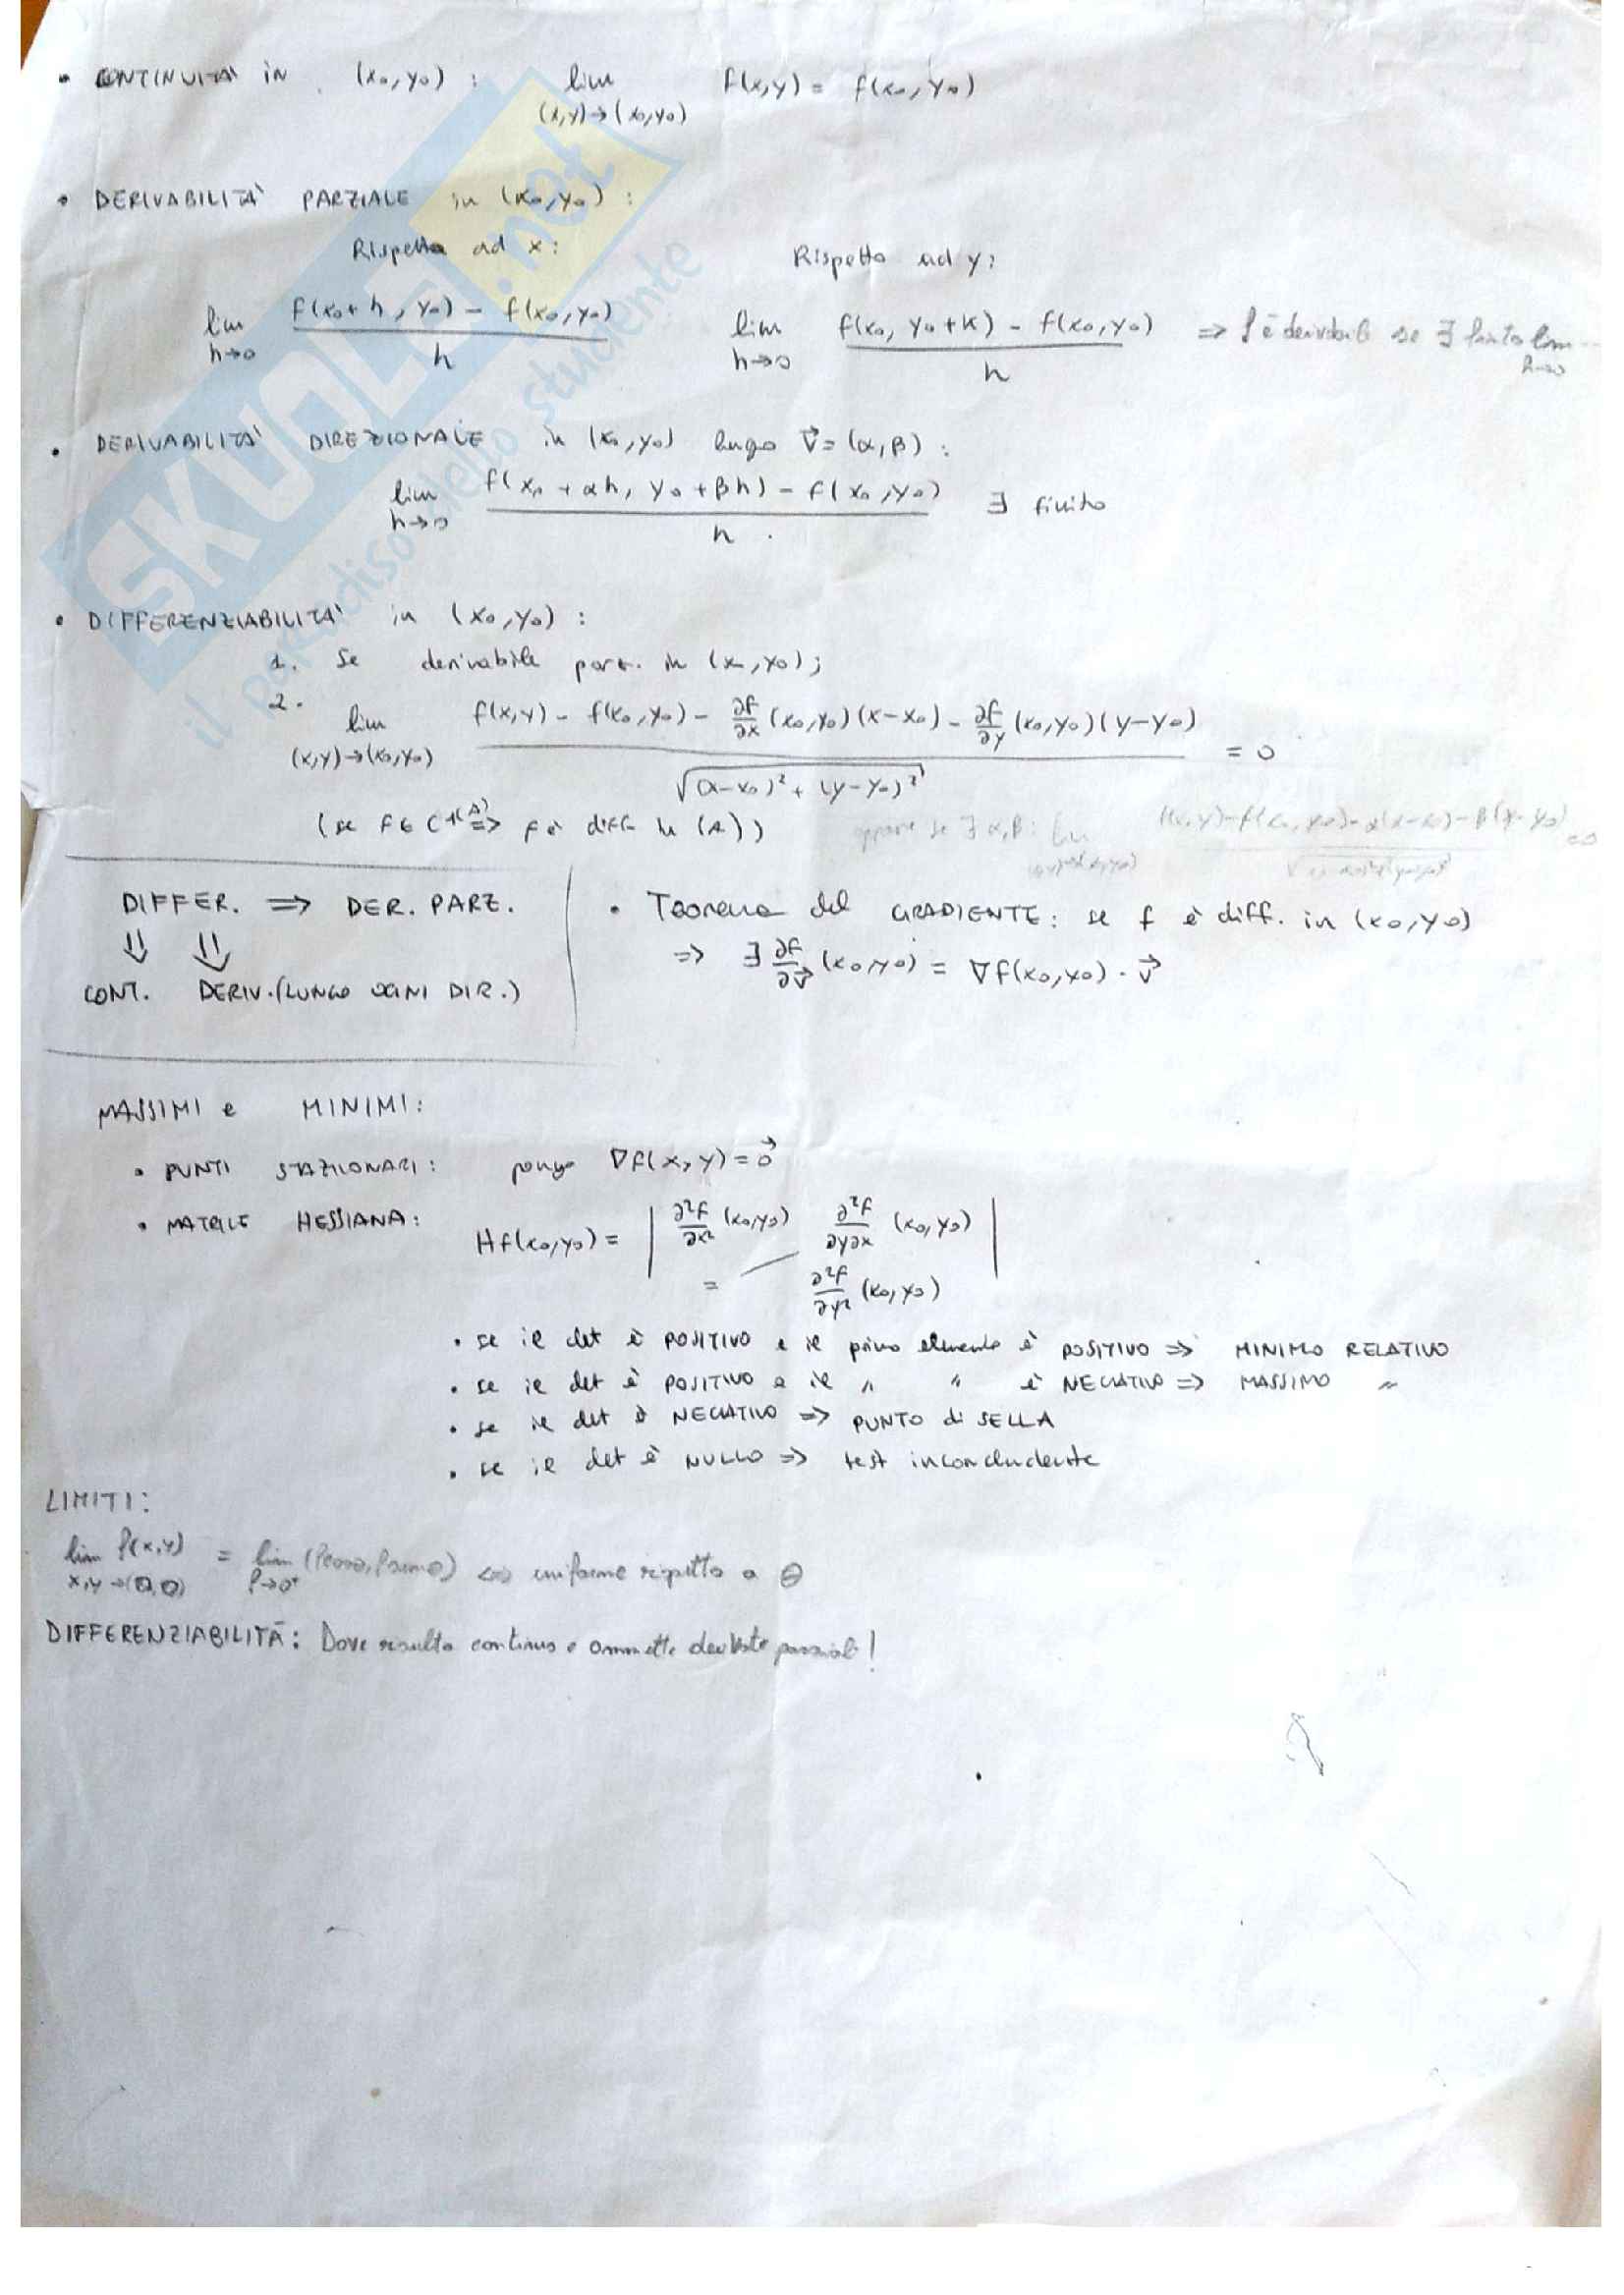 • CONTINUITA' IN (x₀,y₀) : lim f(x,y) = f(x₀,y₀)
(x,y)→(x₀,y₀)
• DERIVABILITA' PARZIALE in (x₀,y₀) :
Rispetto ad x: Rispetto ad y:
lim f(x₀+h, y₀) - f(x₀,y₀) lim f(x₀, y₀+k) - f(x₀,y₀) ⇒ f è derivabile se ∃ finito lim...
h→0 h h→0 h h→0
• DERIVABILITA' DIREZIONALE in (x₀,y₀) lungo v⃗=(α,β) :
lim f(x₀+αh, y₀+βh) - f(x₀,y₀) ∃ finito
h→0 h
• DIFFERENZIABILITA' in (x₀,y₀) :
1. Se derivabile parz. in (x₀,y₀);
2. lim f(x,y) - f(x₀,y₀) - ∂f/∂x (x₀,y₀)(x-x₀) - ∂f/∂y (x₀,y₀)(y-y₀) = 0
(x,y)→(x₀,y₀) √(x-x₀)²+(y-y₀)²
(se f∈C¹(A) ⇒ f è diff. in (A)) oppure se ∃ α,β: lim f(x,y)-f(x₀,y₀)-α(x-x₀)-β(y-y₀) =0
DIFFER. ⇒ DER. PARZ.
⇓ ⇓
CONT. DERIV.(LUNGO OGNI DIR.)
• Teorema del GRADIENTE: se f è diff. in (x₀,y₀)
⇒ ∃ ∂f/∂v⃗ (x₀,y₀) = ∇f(x₀,y₀) · v⃗
MASSIMI e MINIMI:
• PUNTI STAZIONARI: pongo ∇f(x,y)=0⃗
• MATRICE HESSIANA: Hf(x₀,y₀) = | ∂²f/∂x² (x₀,y₀) ∂²f/∂y∂x (x₀,y₀) |
= ∂²f/∂y² (x₀,y₀)
• se il det è POSITIVO e il primo elemento è POSITIVO ⇒ MINIMO RELATIVO
• se il det è POSITIVO e il " " è NEGATIVO ⇒ MASSIMO "
• se il det è NEGATIVO ⇒ PUNTO di SELLA
• se il det è NULLO ⇒ test inconcludente
LIMITI:
lim f(x,y) = lim (ρcosθ,ρsenθ) ⇔ uniforme rispetto a θ
x,y→(0,0) ρ→0⁺
DIFFERENZIABILITÀ: Dove risulta continua e ammette derivate parziali!
SKUOLA.net
il paradiso dello studente